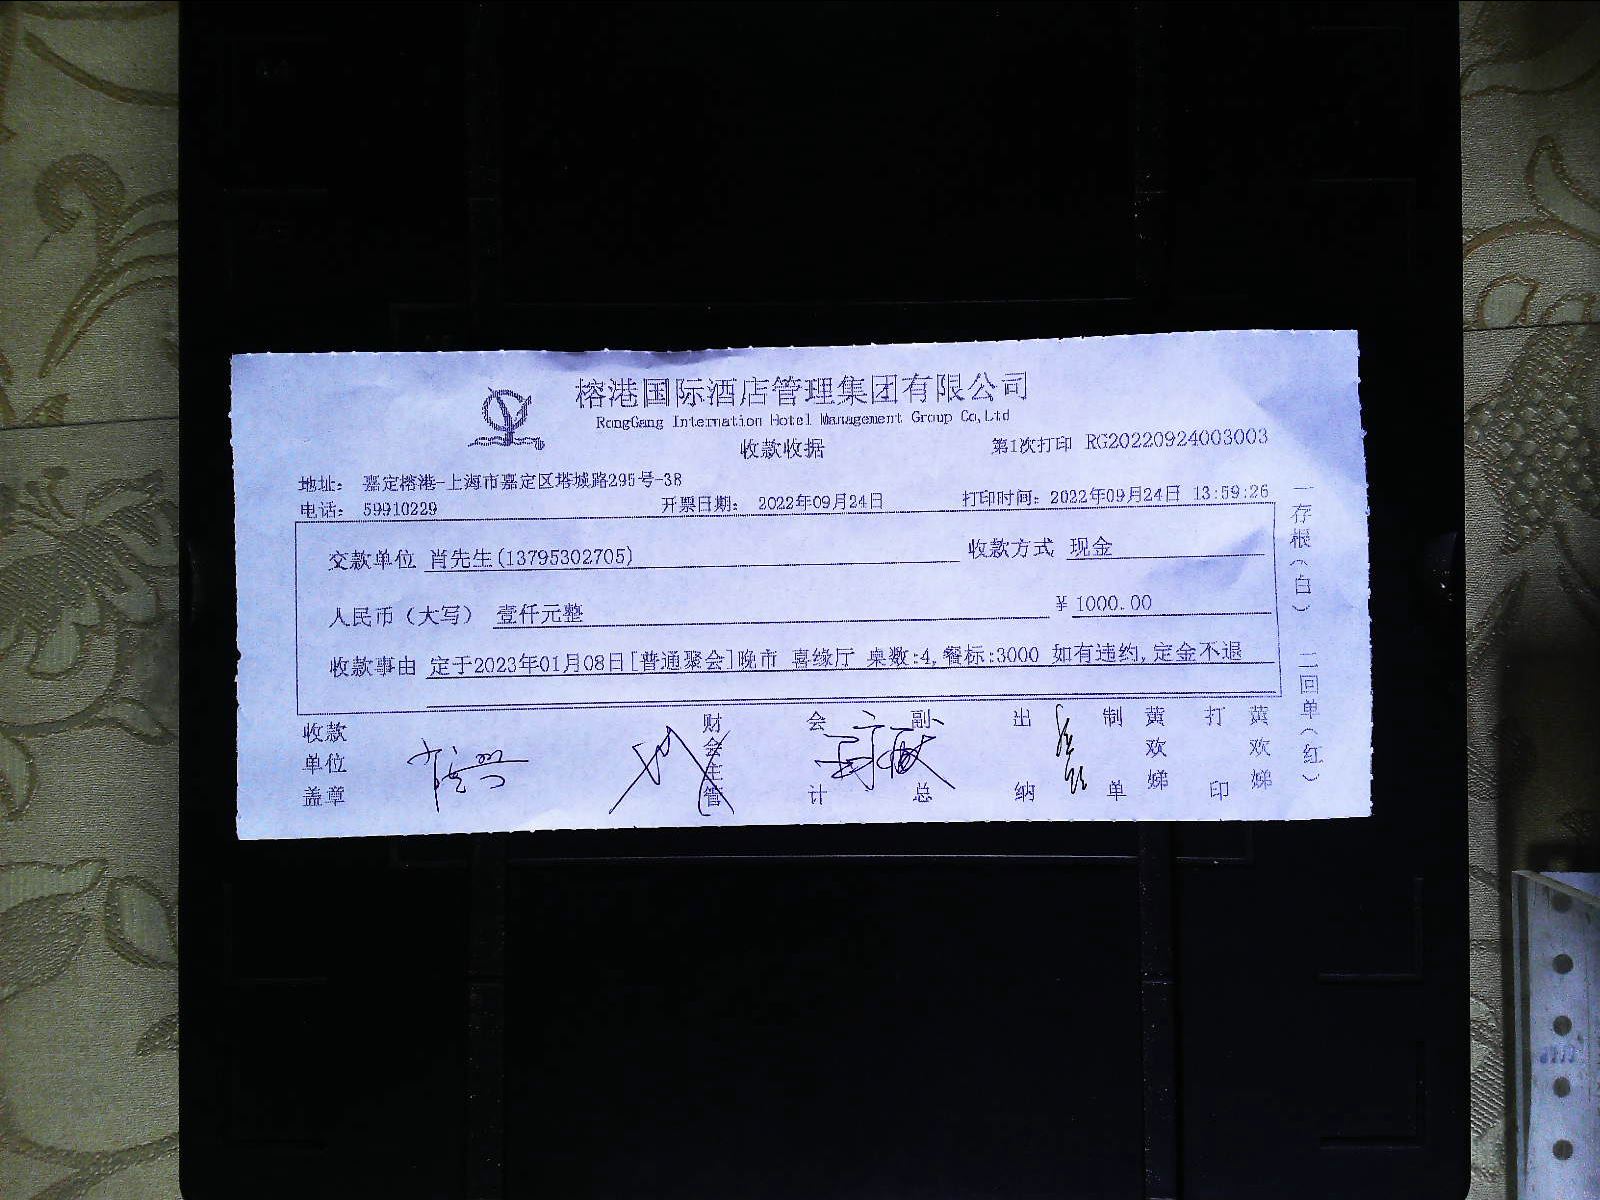 榕港国际酒店管理集团有限公司
RongGang Internation Hotel Management Group Co,Ltd
收款收据
第1次打印 RG20220924003003
地址： 嘉定榕港-上海市嘉定区塔城路295号-38
电话： 59910229 开票日期： 2022年09月24日 打印时间：2022年09月24日 13:59:26
交款单位 肖先生(13795302705) 收款方式 现金
人民币（大写） 壹仟元整 ¥ 1000.00
收款事由 定于2023年01月08日[普通聚会]晚市 喜缘厅 桌数:4,餐标:3000 如有违约,定金不退
收款单位盖章
财会主管
会计
副总
出纳
制单 黄欢娣
打印 黄欢娣
一存根（白） 二回单（红）